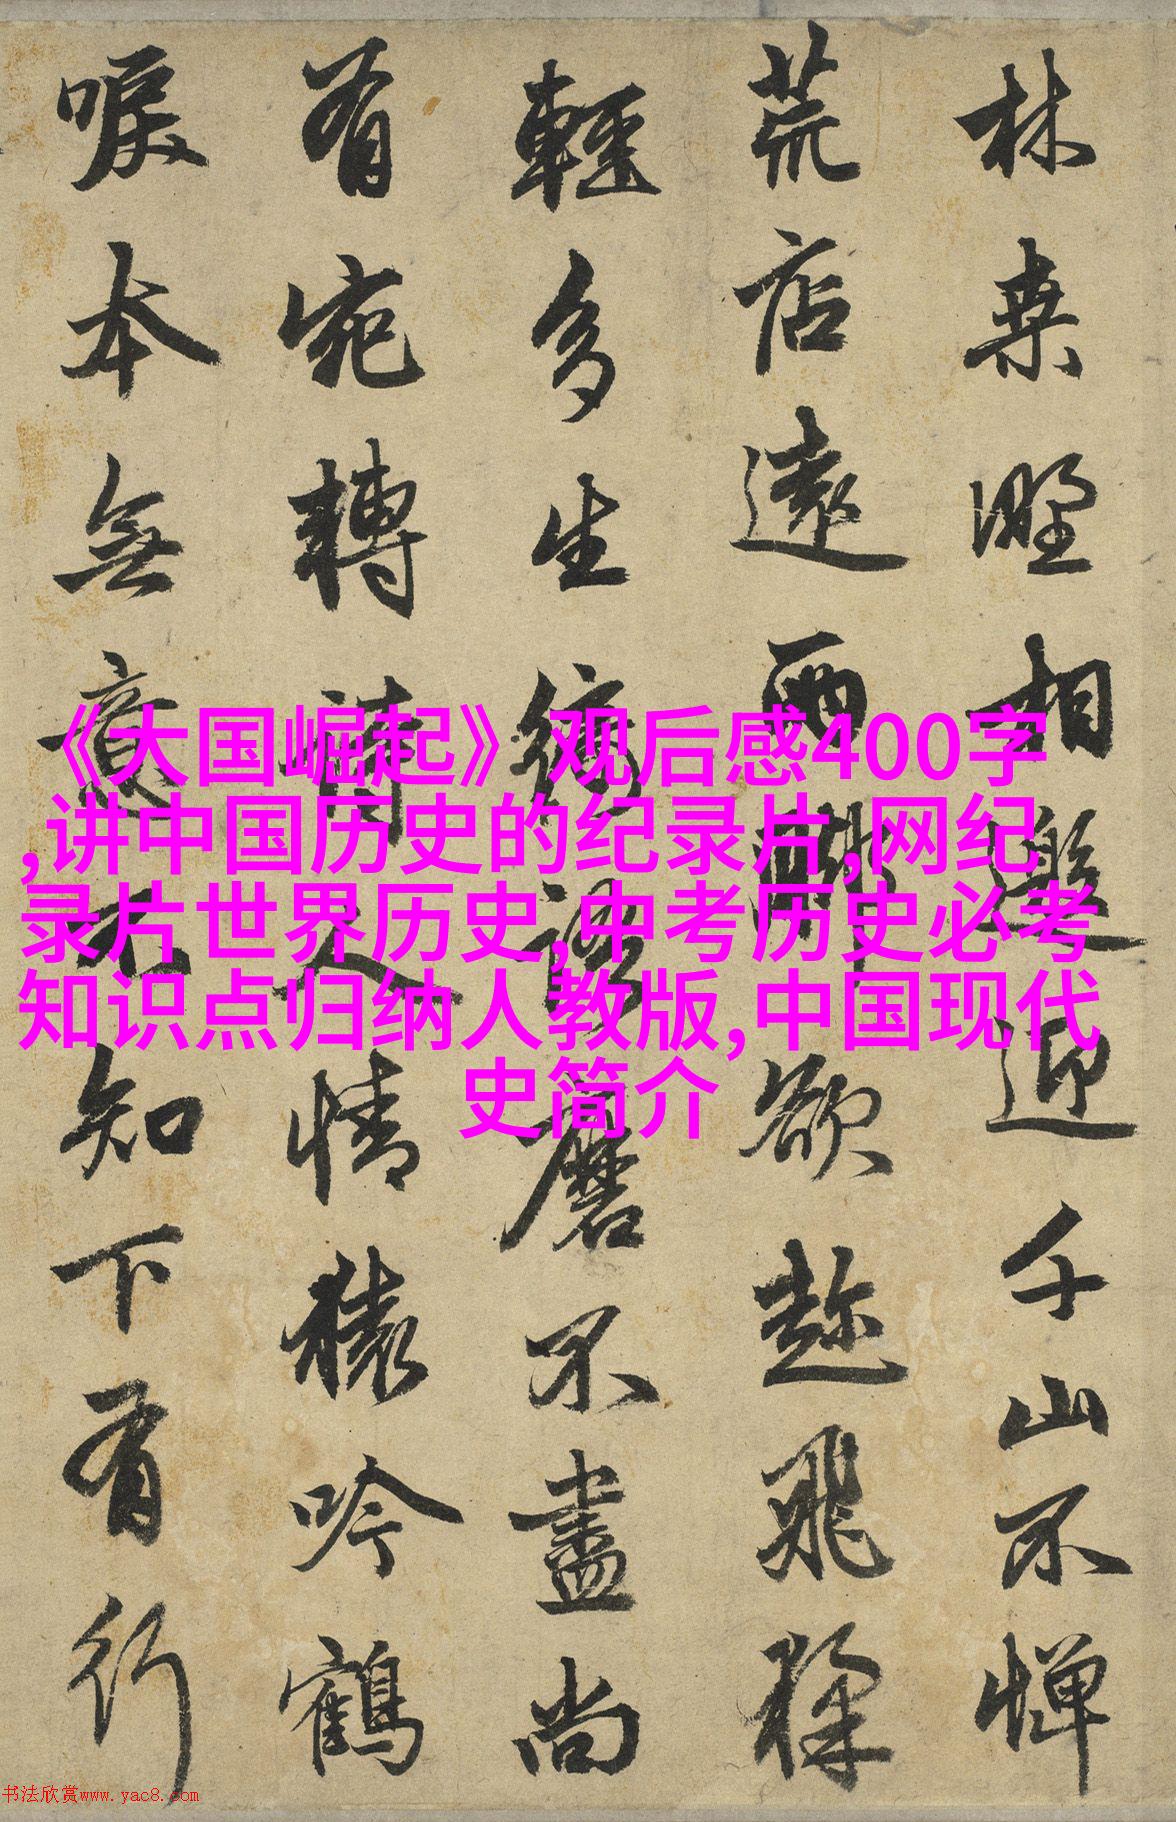 林桒野相邀迎千山不惮
荒店遠兩脚欲趂飛猱
輕多生綺語磨不盡尚
有宛轉詩人情猿吟鶴
唳本無意不知下有行
《大国崛起》观后感400字
,讲中国历史的纪录片,网纪
录片世界历史,中考历史必考
知识点归纳人教版,中国现代
史简介
书法欣赏www.yac8.com